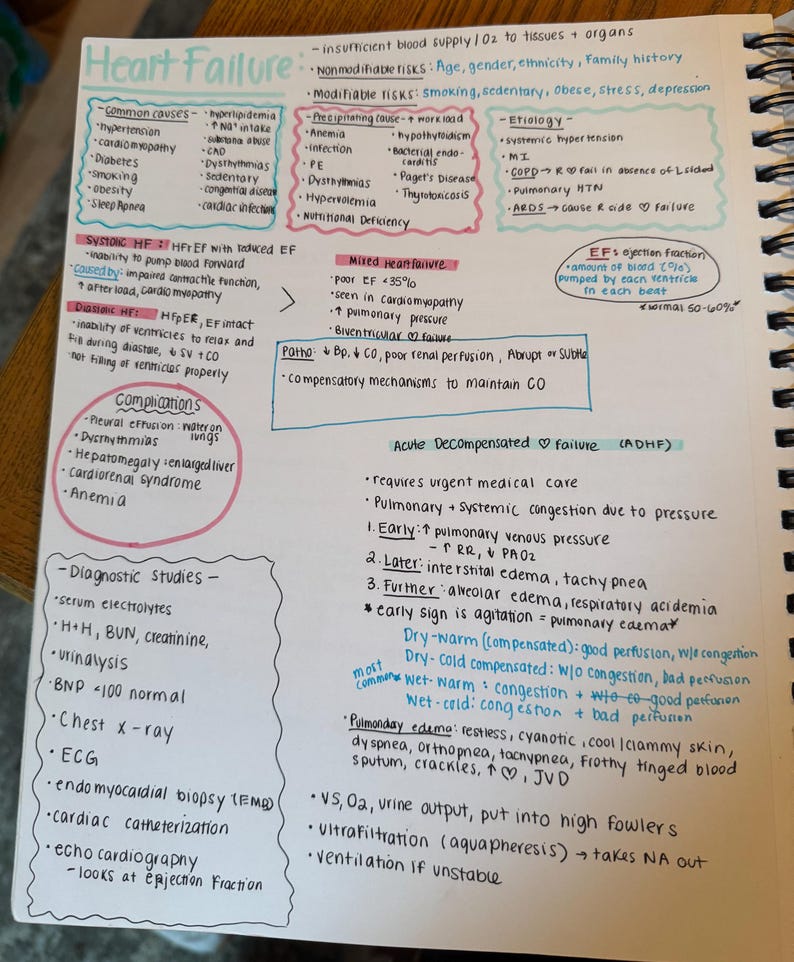 Heart Failure:
- insufficient blood supply / O2 to tissues + organs
• Nonmodifiable risks: Age, gender, ethnicity, family history
• Modifiable risks: smoking, sedentary, obese, stress, depression
- Common causes -
• hypertension
• cardiomyopathy
• Diabetes
• smoking
• obesity
• Sleep Apnea
• hyperlipidemia
• ↑ Na+ intake
• substance abuse
• CAD
• Dysrhythmias
• Sedentary
• congenital disease
• cardiac infections
- Precipitating cause - ↑ workload
• Anemia
• infection
• PE
• Dysrhythmias
• Hypervolemia
• Nutritional Deficiency
• hypothyroidism
• Bacterial endo-
carditis
• Paget's Disease
• Thyrotoxicosis
- Etiology -
• systemic hypertension
• MI
• COPD → R ♡ fail in absence of L sided
• Pulmonary HTN
• ARDS → cause R side ♡ failure
Systolic HF: HFrEF with reduced EF
• inability to pump blood forward
• caused by: impaired contractile function,
↑ afterload, cardiomyopathy
Diastolic HF: HFpEF, EF intact
• inability of ventricles to relax and
fill during diastole, ↓ SV + CO
• not filling of ventricles properly
>
Mixed Heart failure
• poor EF <35%
• seen in cardiomyopathy
• ↑ pulmonary pressure
• Biventricular ♡ failure
EF: ejection fraction
• amount of blood (%)
pumped by each ventricle
in each beat
*normal 50-60%*
Patho: ↓ Bp, ↓ CO, poor renal perfusion, Abrupt or Subtle
• compensatory mechanisms to maintain CO
Complications
• Pleural effusion: water on
lungs
• Dysrhythmias
• Hepatomegaly: enlarged liver
• Cardiorenal syndrome
• Anemia
- Diagnostic studies -
• serum electrolytes
• H+H, BUN, creatinine,
• urinalysis
• BNP <100 normal
• Chest x-ray
• ECG
• endomyocardial biopsy (EMB)
• cardiac catheterization
• echo cardiography
- looks at ejection fraction
Acute Decompensated ♡ failure (ADHF)
• requires urgent medical care
• Pulmonary + systemic congestion due to pressure
1. Early: ↑ pulmonary venous pressure
- ↑ RR, ↓ PAO2
2. Later: interstital edema, tachypnea
3. Further: alveolar edema, respiratory acidemia
* early sign is agitation = pulmonary edema*
Dry-warm (compensated): good perfusion, w/o congestion
Dry-cold compensated: w/o congestion, bad perfusion
most
common* wet-warm: congestion + w/o co good perfusion
wet-cold: congestion + bad perfusion
• Pulmonday edema: restless, cyanotic, cool/clammy skin,
dyspnea, orthopnea, tachypnea, frothy tinged blood
sputum, crackles, ↑ ♡, JVD
• VS, O2, urine output, put into high fowlers
• ultrafiltration (aquapheresis) → takes NA out
• ventilation if unstable